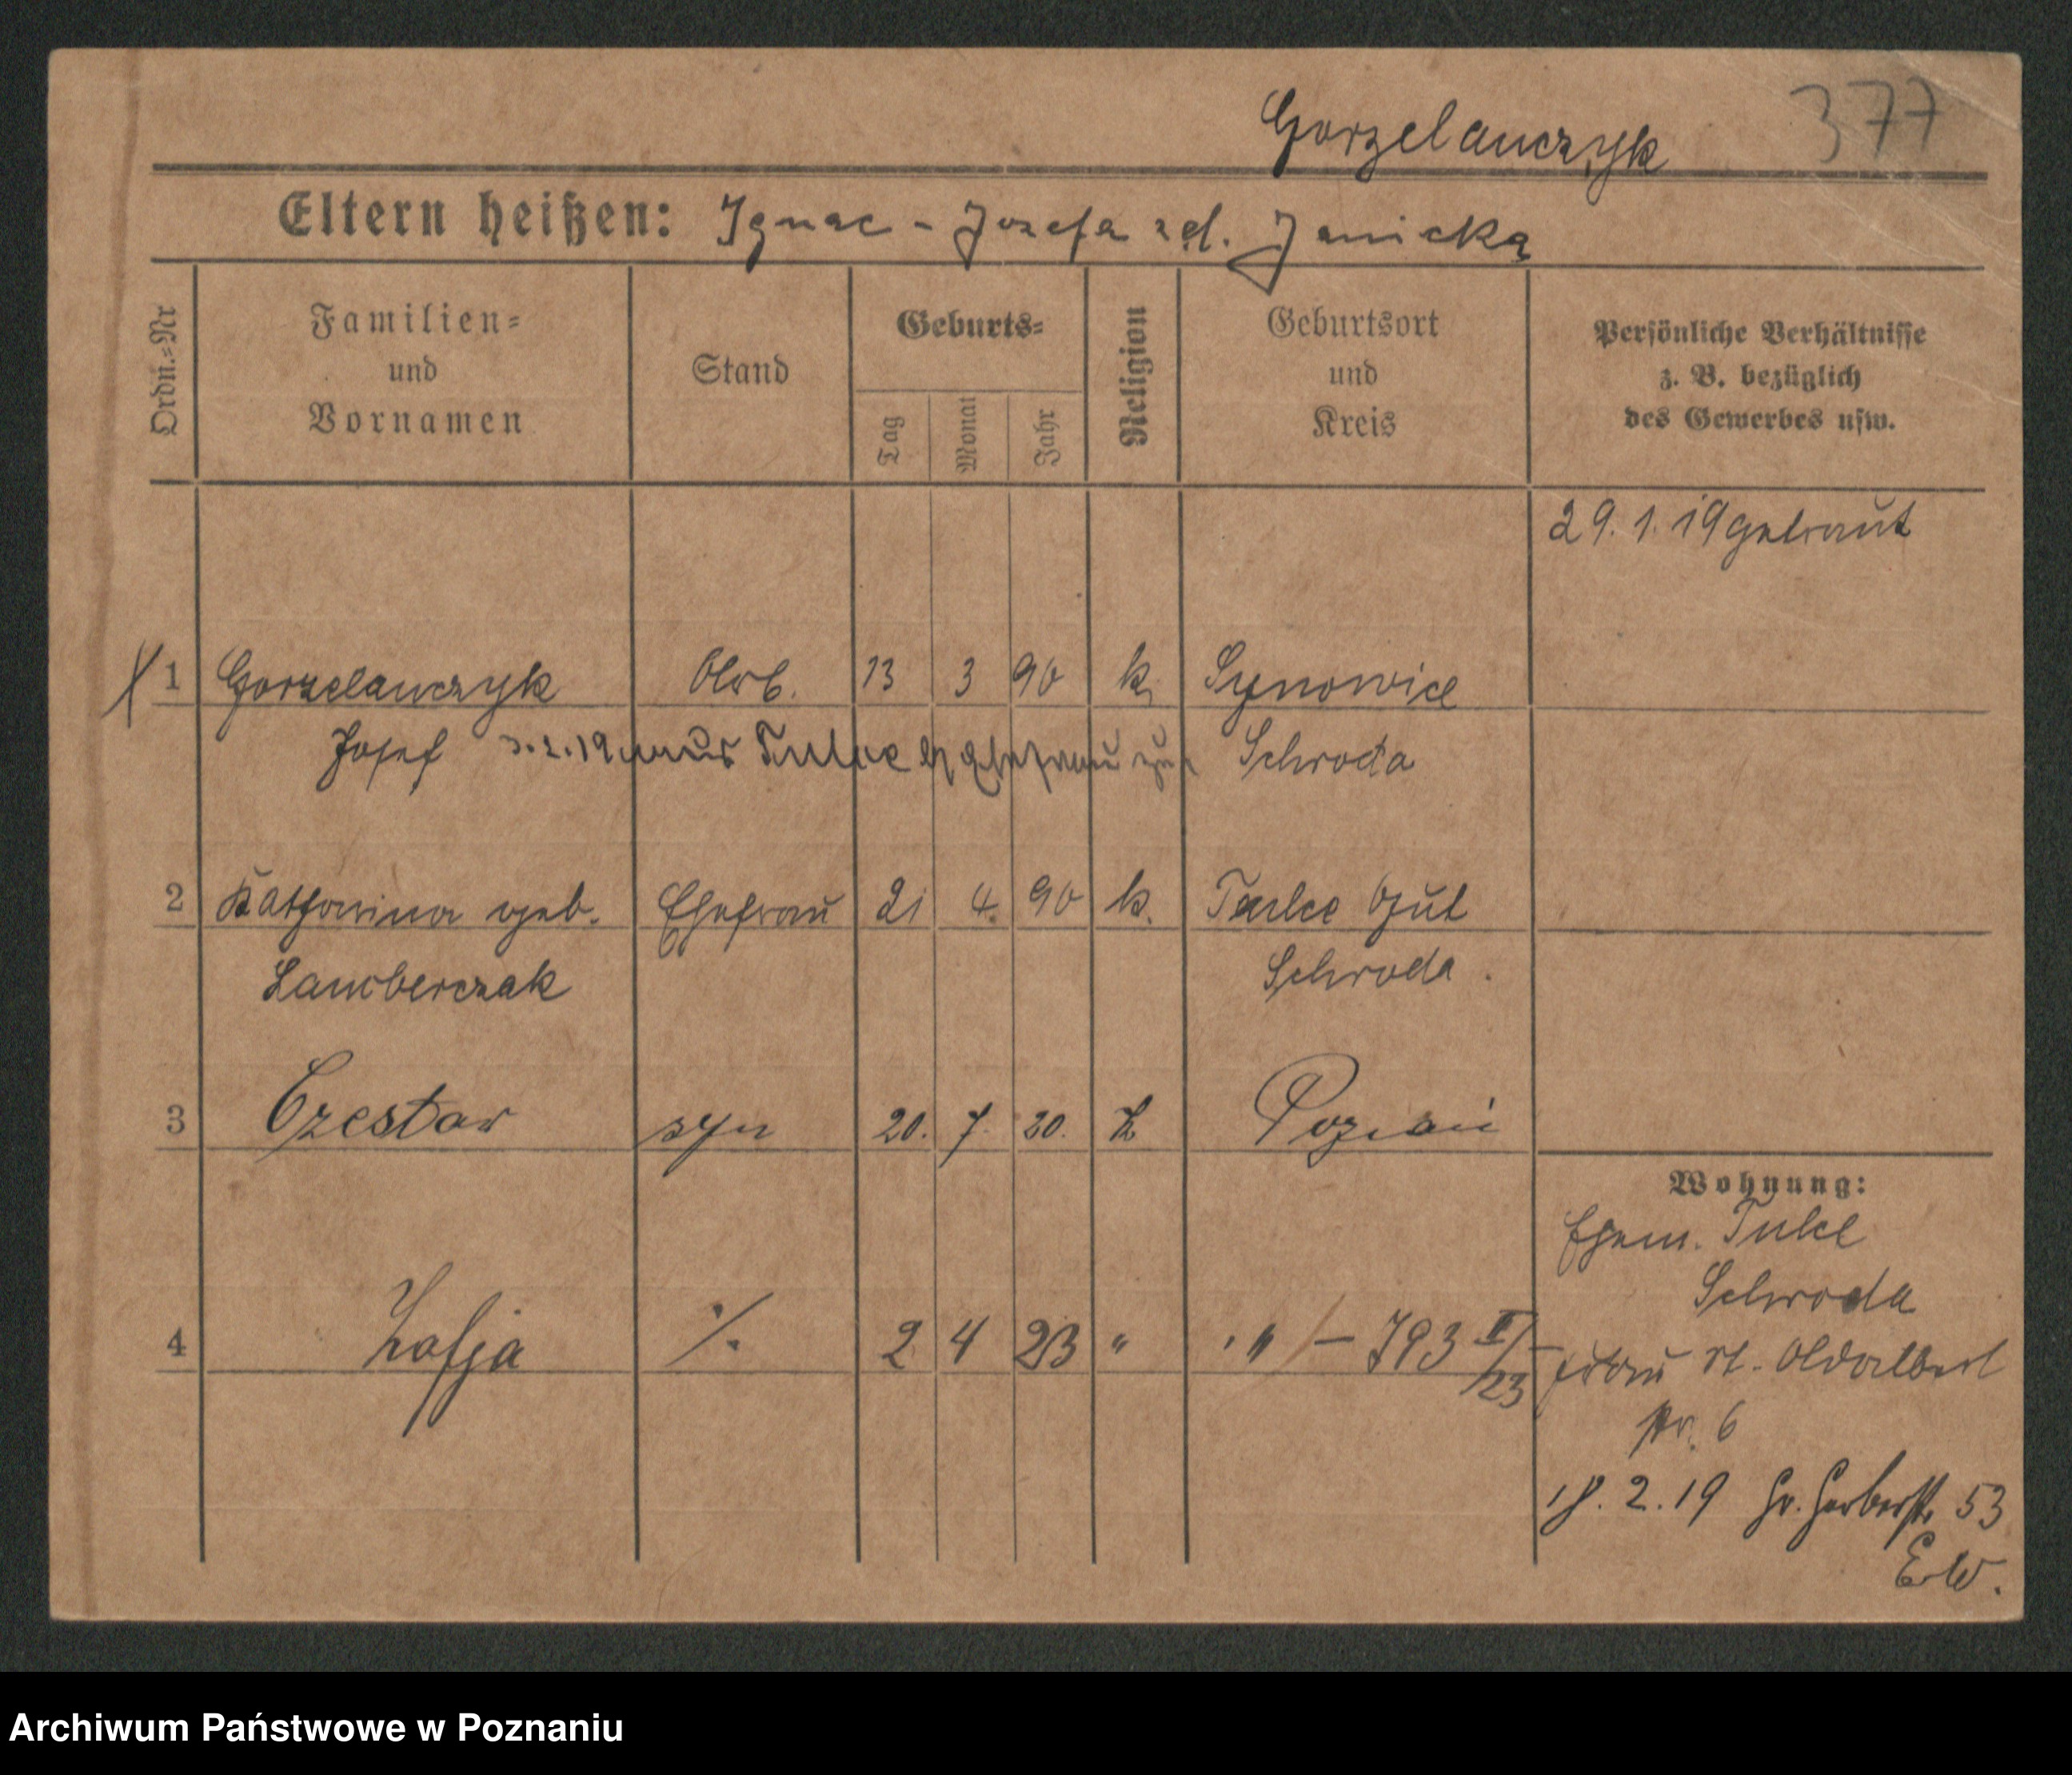 Gorzelanczyk 377
Eltern heißen: Ignac - Jozefa zd. Janicka
Ordn.=Nr
Familien=
und
Vornamen
Stand
Geburts=
Tag
Monat
Jahr
Religion
Geburtsort
und
Kreis
Persönliche Verhältnisse
z. B. bezüglich
des Gewerbes usw.
29. 1. 19 getraut
1 Gorzelanczyk Arb. 13 3 90 k.
Josef 3.2.19 nach Tulce Ehefrau Schroda
2 Katharina geb. Ehefrau 21 4. 90 k. Tulce Gut
Lamberczak Schroda.
3 Czesław syn 20. 7. 20. k Poznań
Wohnung:
Ehem. Tulce
Schroda
4 Zofja ./. 2 4 23 " " - 793 II/23
Frau St. Adalbert
str. 6
18. 2. 19 Gr. Gerberstr. 53
E.W.
Archiwum Państwowe w Poznaniu